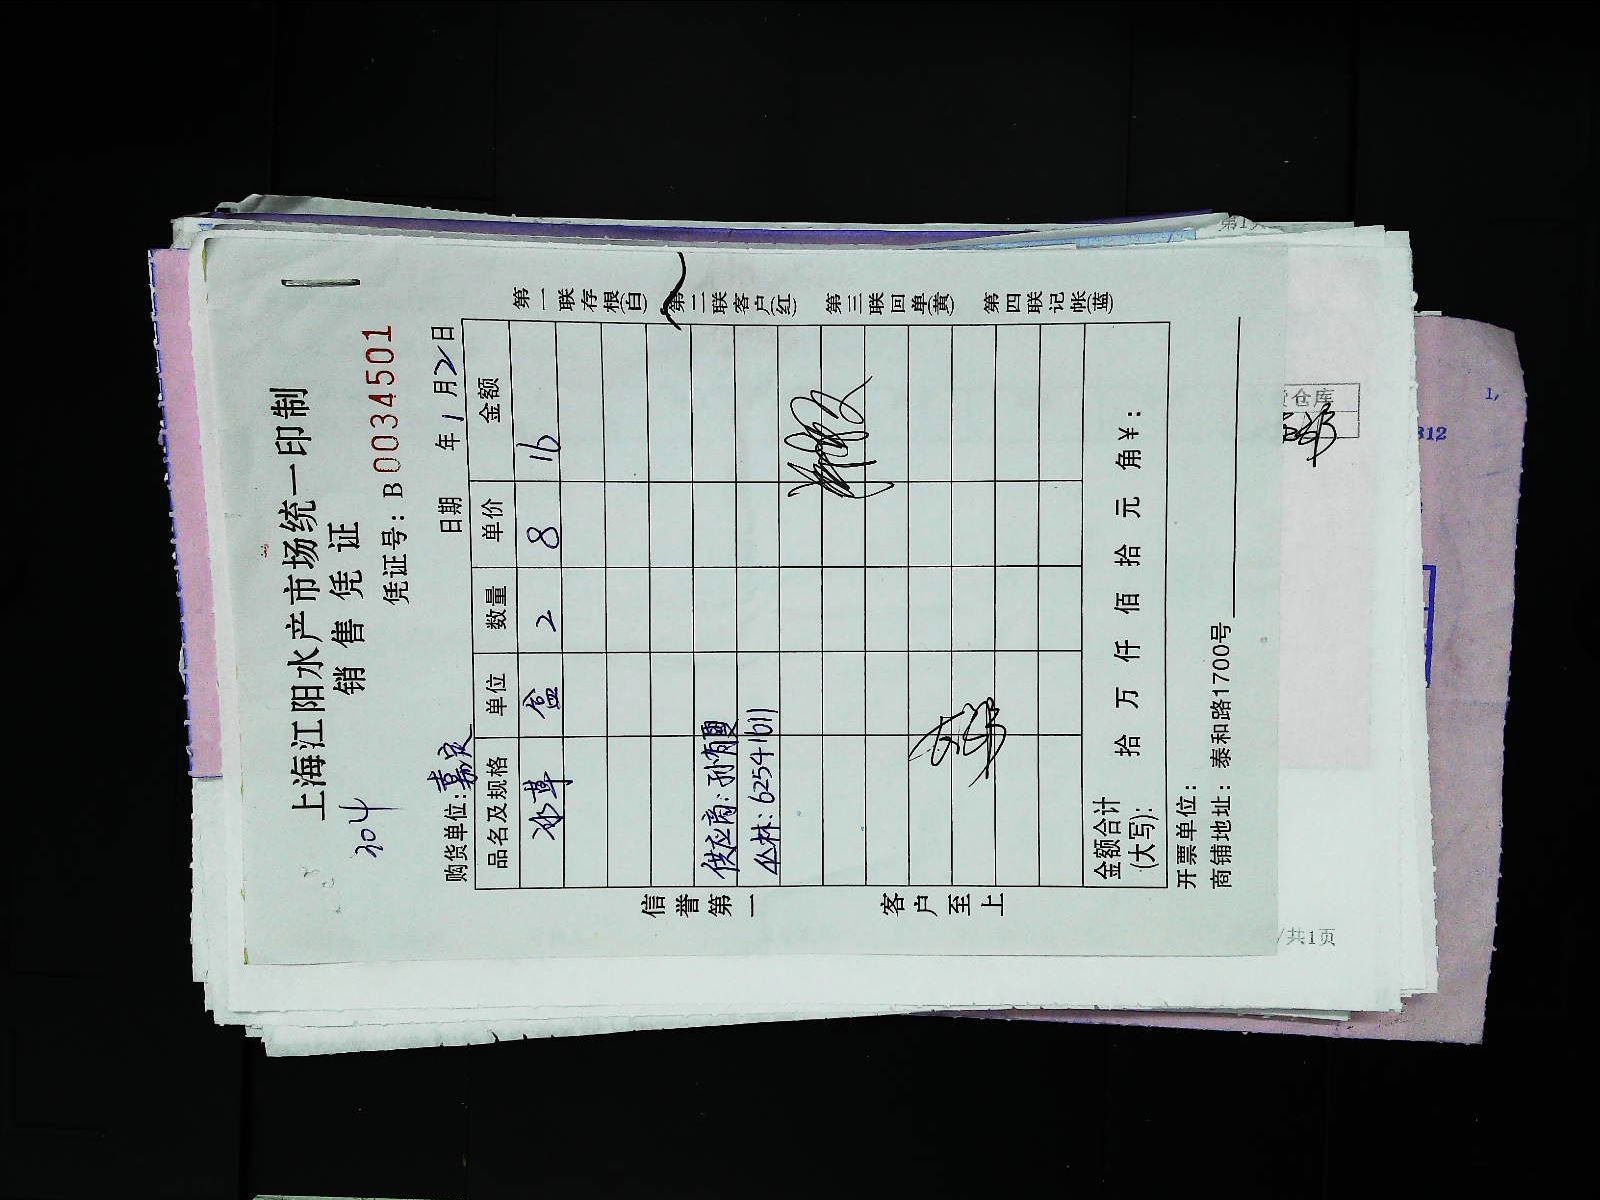 上海江阳水产市场统一印制
销售凭证
304
凭证号：B 0034501
购货单位：嘉定
日期 年1月2日
品名及规格 单位 数量 单价 金额
冰草 盒 2 8 16
供应商：孙有
丛林：62541611
金额合计(大写)： 拾 万 仟 佰 拾 元 角 ¥：
开票单位：
商铺地址：泰和路1700号
信誉第一 客户至上
第一联存根(白) 第二联客户(红) 第三联回单(黄) 第四联记帐(蓝)
仓库
/共1页
第1
312
1,